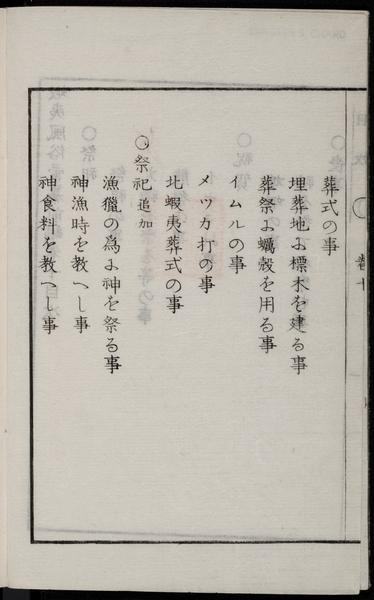 葬式の事
埋葬地に標木を建る事
葬祭に蠣殻を用る事
イムルの事
メツカ打の事
北蝦夷葬式の事
○祭祀追加
漁獵の為に神を祭る事
神漁時を教へし事
神食料を教へし事